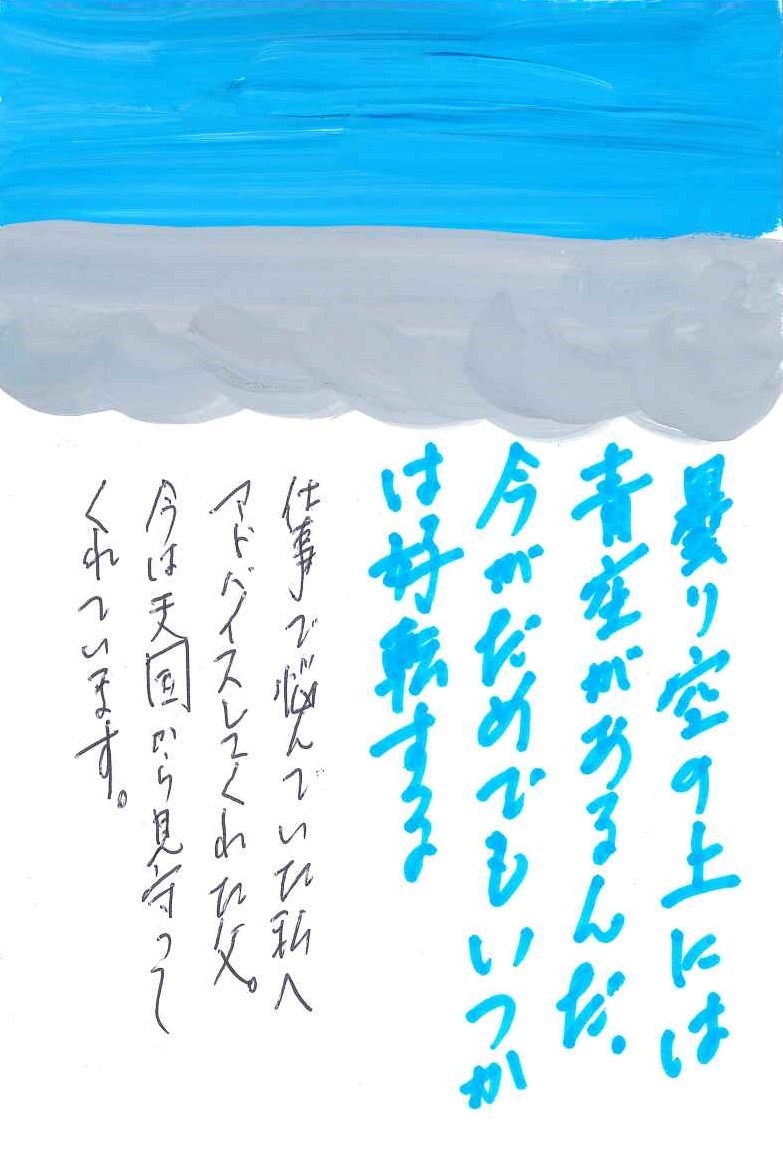 曇り空の上には
青空があるんだ.
今がだめでもいつか
は好転する
仕事で悩んでいた私へ
アドバイスしてくれた父。
今は天国から見守って
くれています。